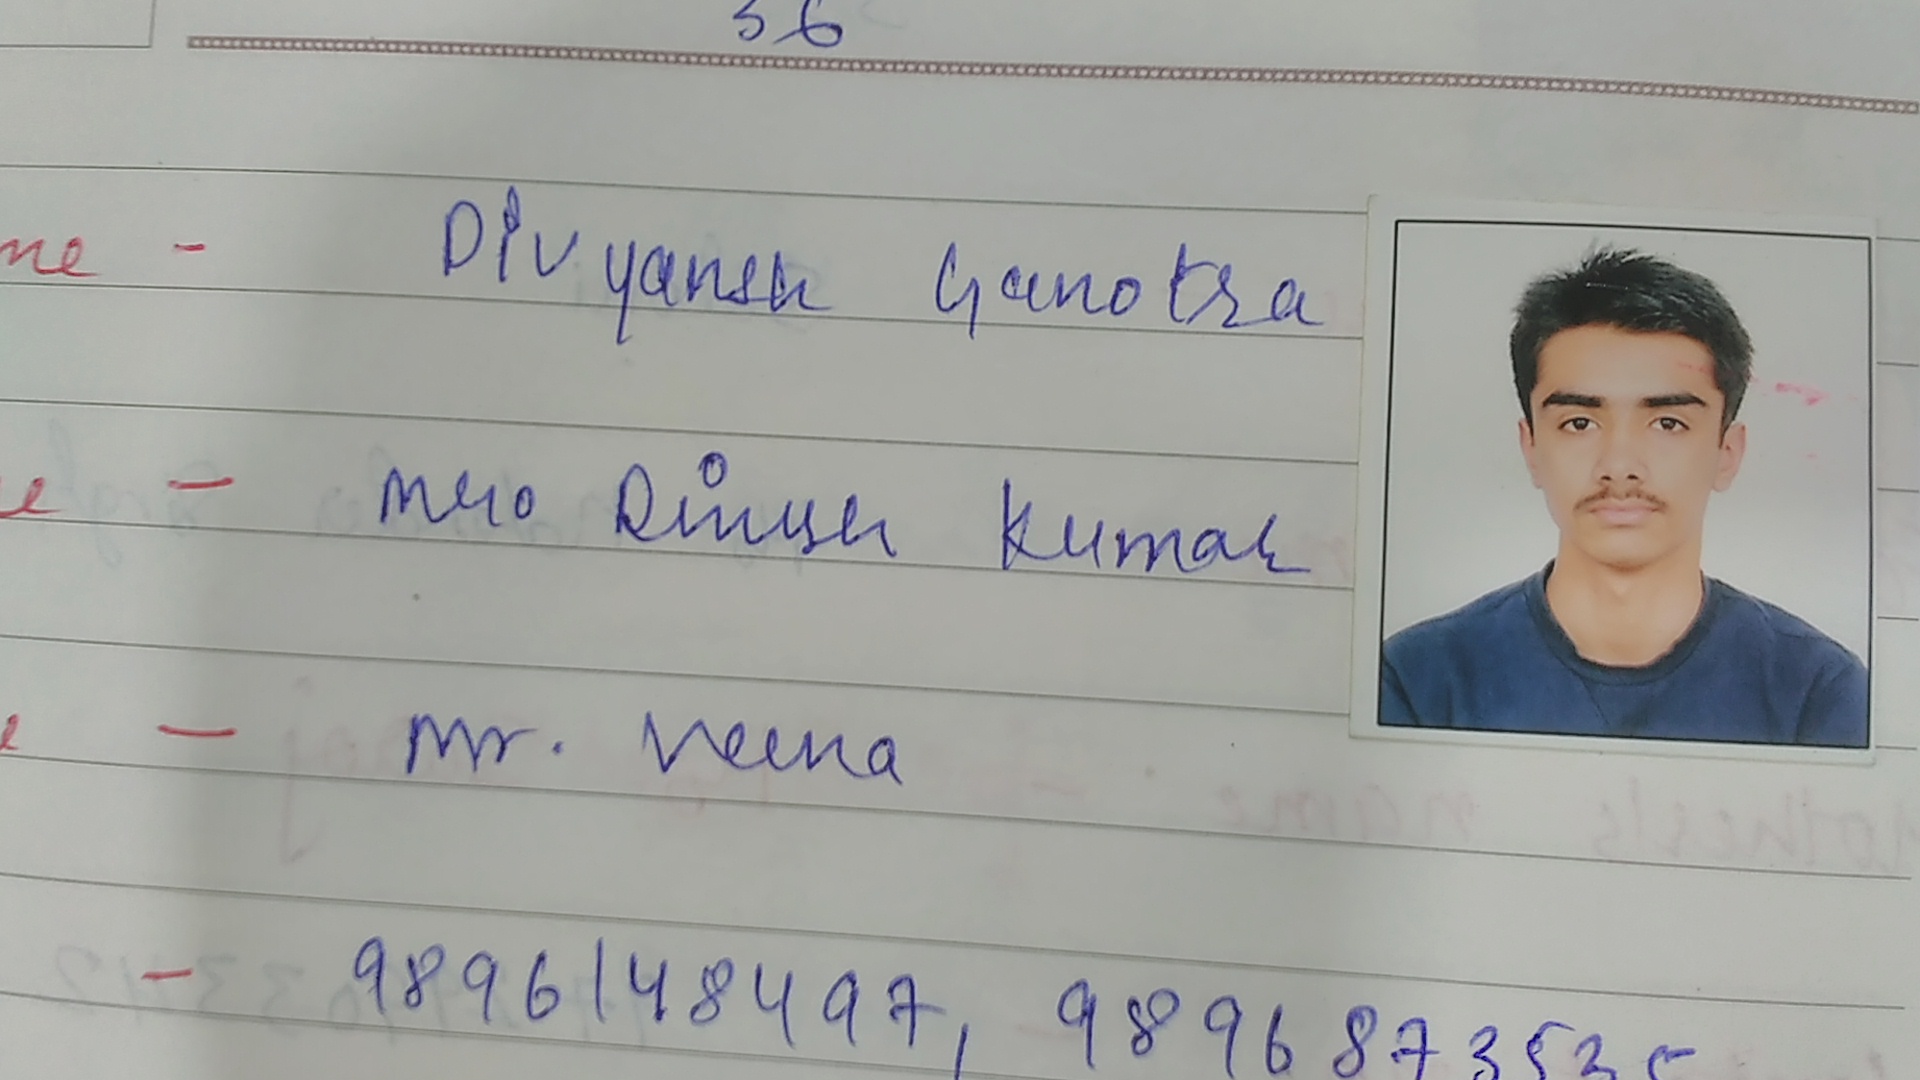 36
me - Divyansh Ganotra
e - Mr. Dinesh Kumar
e - Mr. Veena
- 9896148497, 9896873535